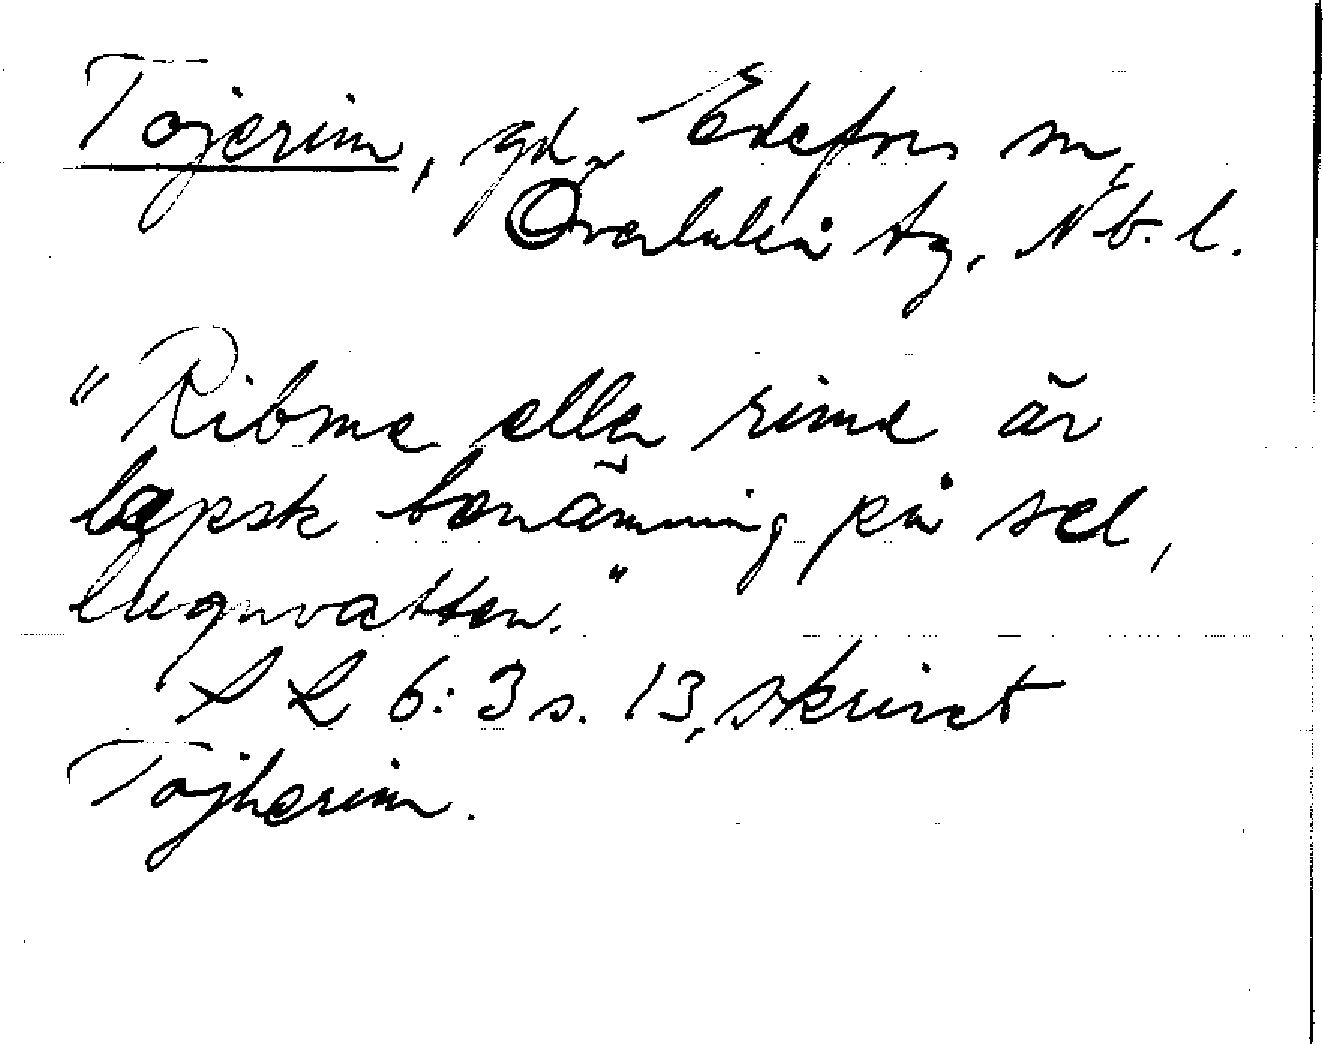 Tojerim, gd, Edefors sn,
Överluleå tg, Nb. l.
"Ribme eller rime är
lapsk benämning på sel,
lugnvatten."
S L 6:3 s. 13, skrivet
Tojherim.